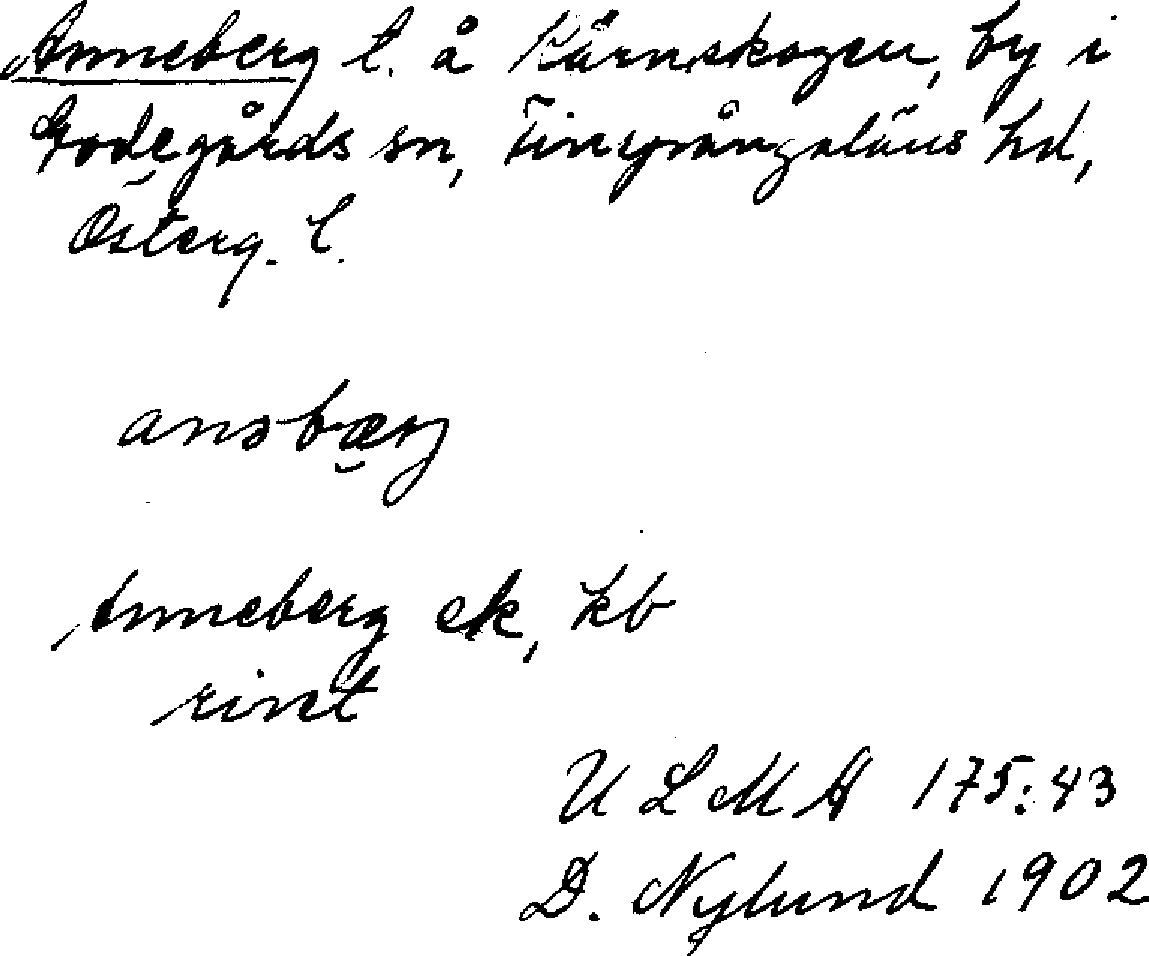 Anneberg t. å Kärnskogen, by i
Godegårds sn, Finspångaläns hd,
Österg. l.
anəbærg
Anneberg ek, kb
rint
U L M A 175:43
D. Nylund 1902